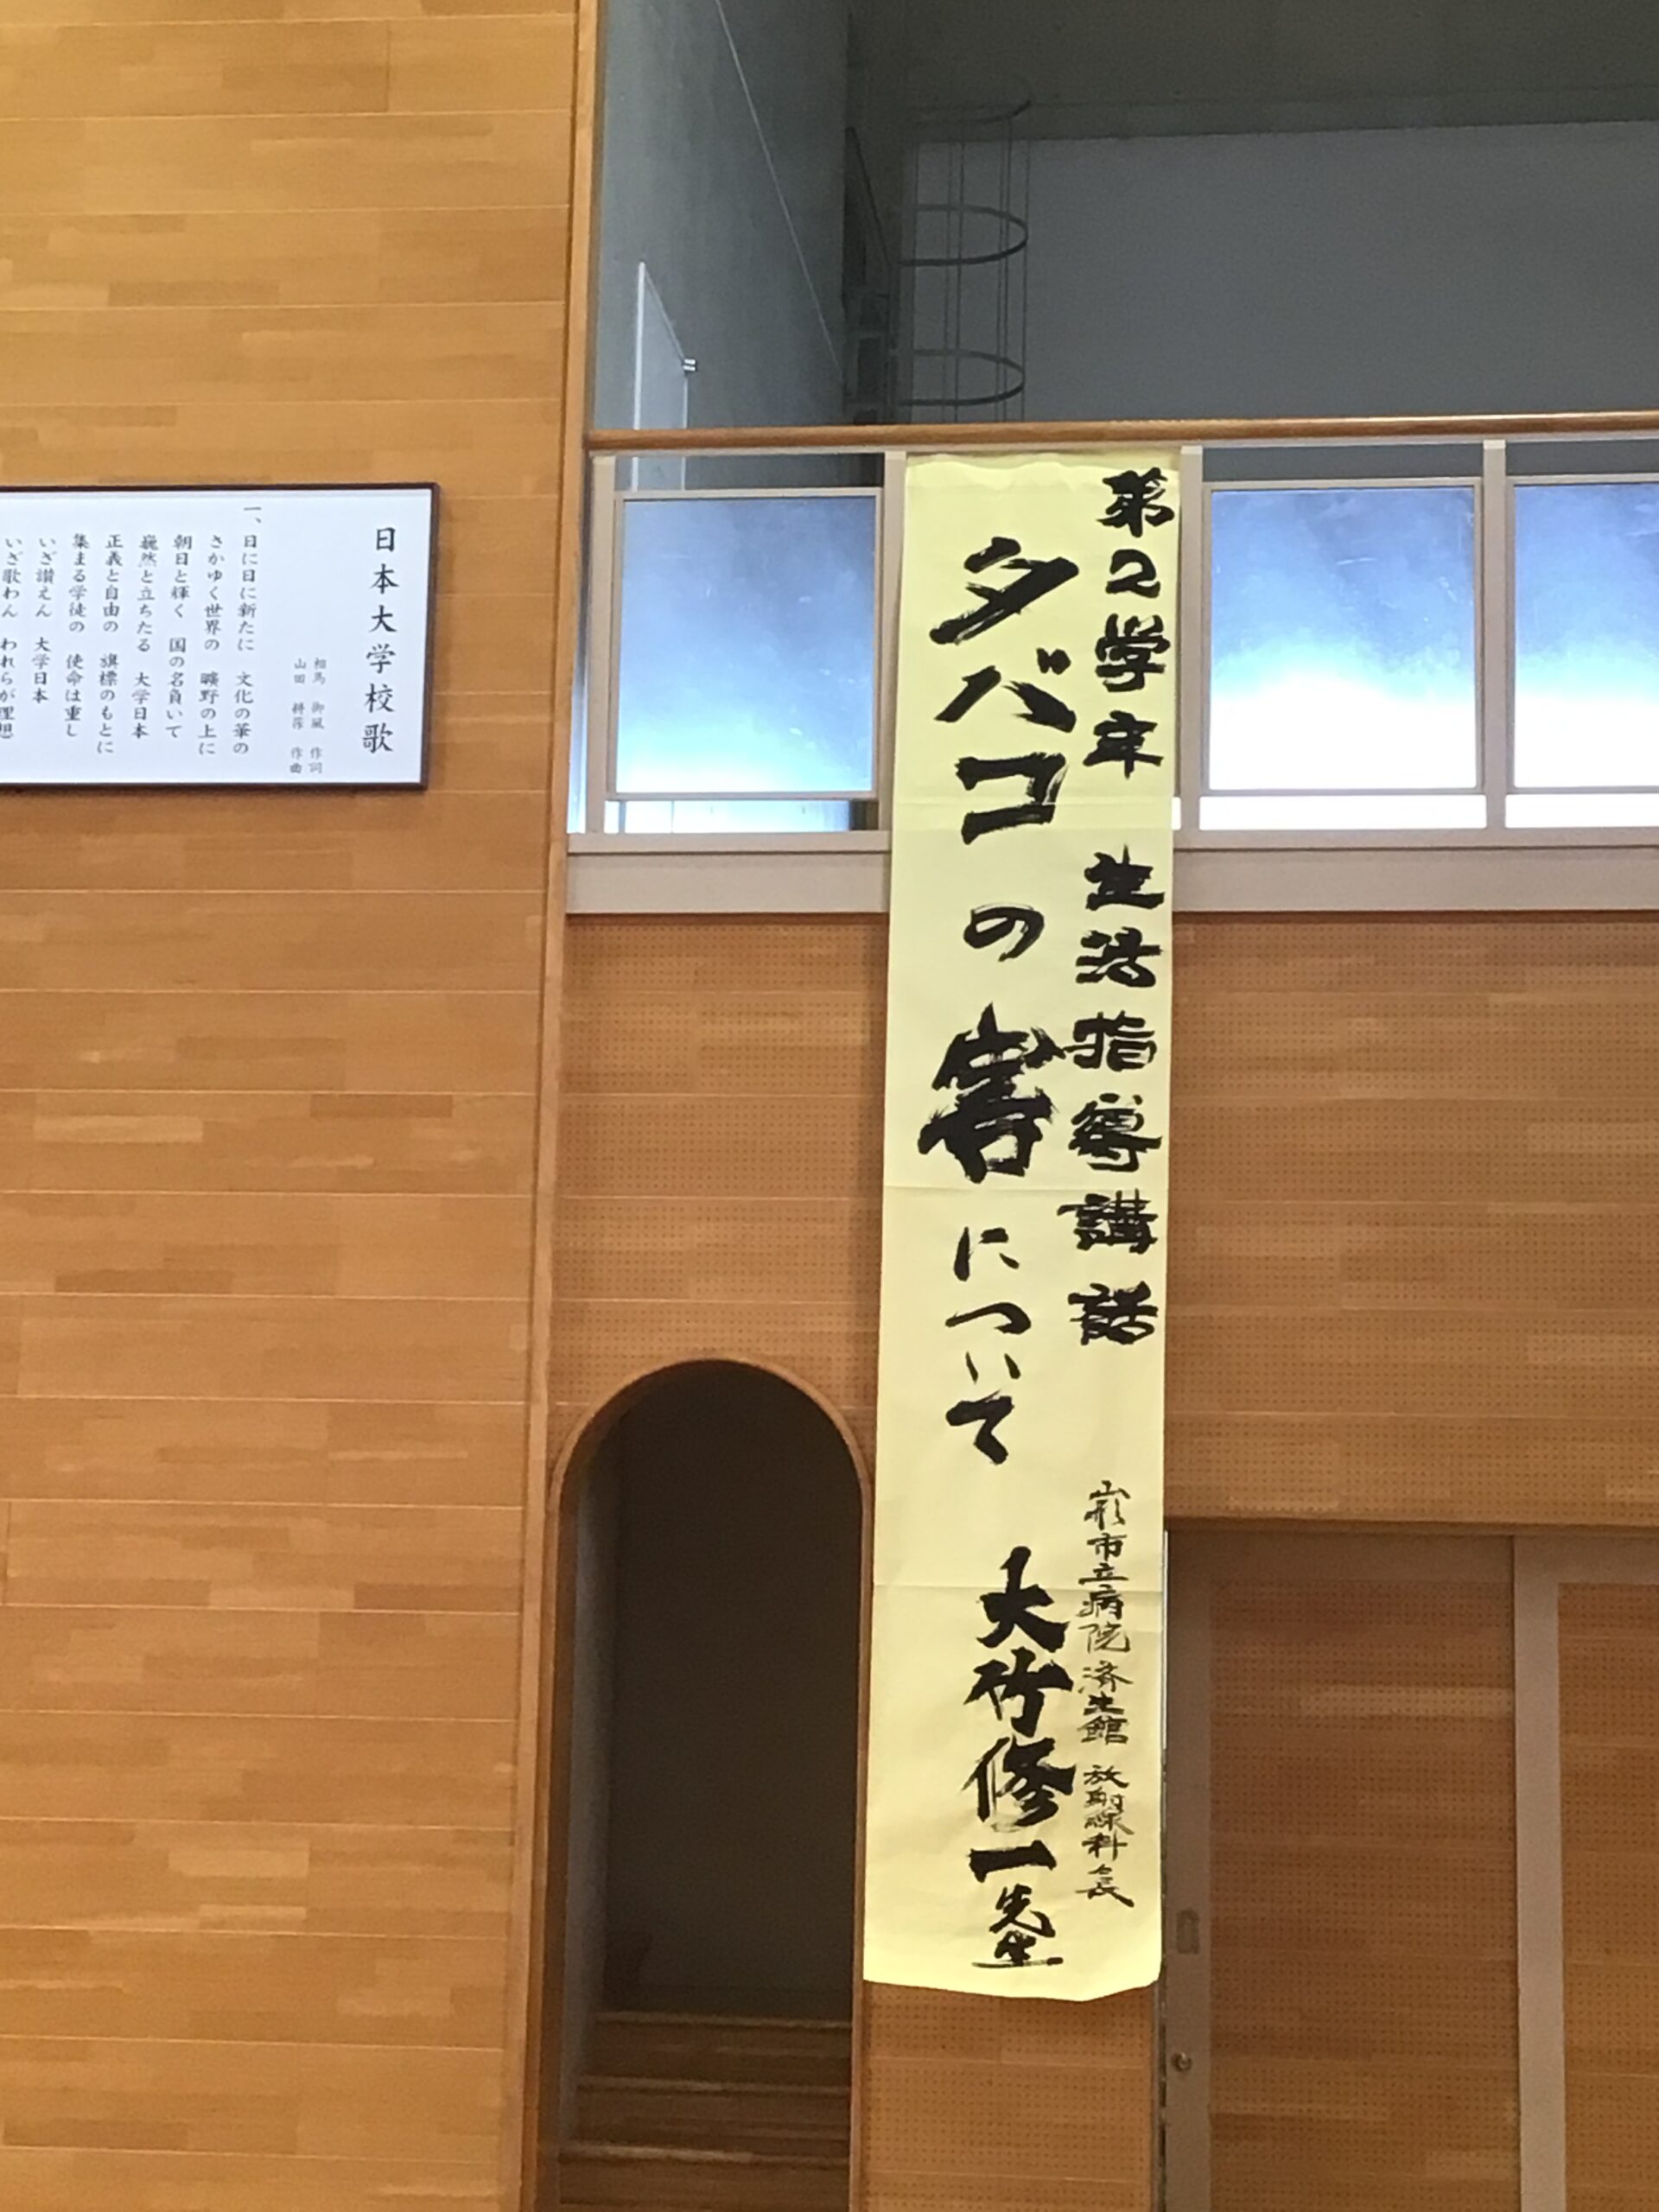 第2学年 生活指導講話
タバコの害について
山形市立病院済生館 放射線科長
大竹修一先生
日本大学校歌
相馬 御風 作詞
山田 耕筰 作曲
一、日に日に新たに 文化の華の
さかゆく世界の 曠野の上に
朝日と輝く 国の名負いて
巍然と立ちたる 大学日本
正義と自由の 旗標のもとに
集まる学徒の 使命は重し
いざ讃えん 大学日本
いざ歌わん われらが理想